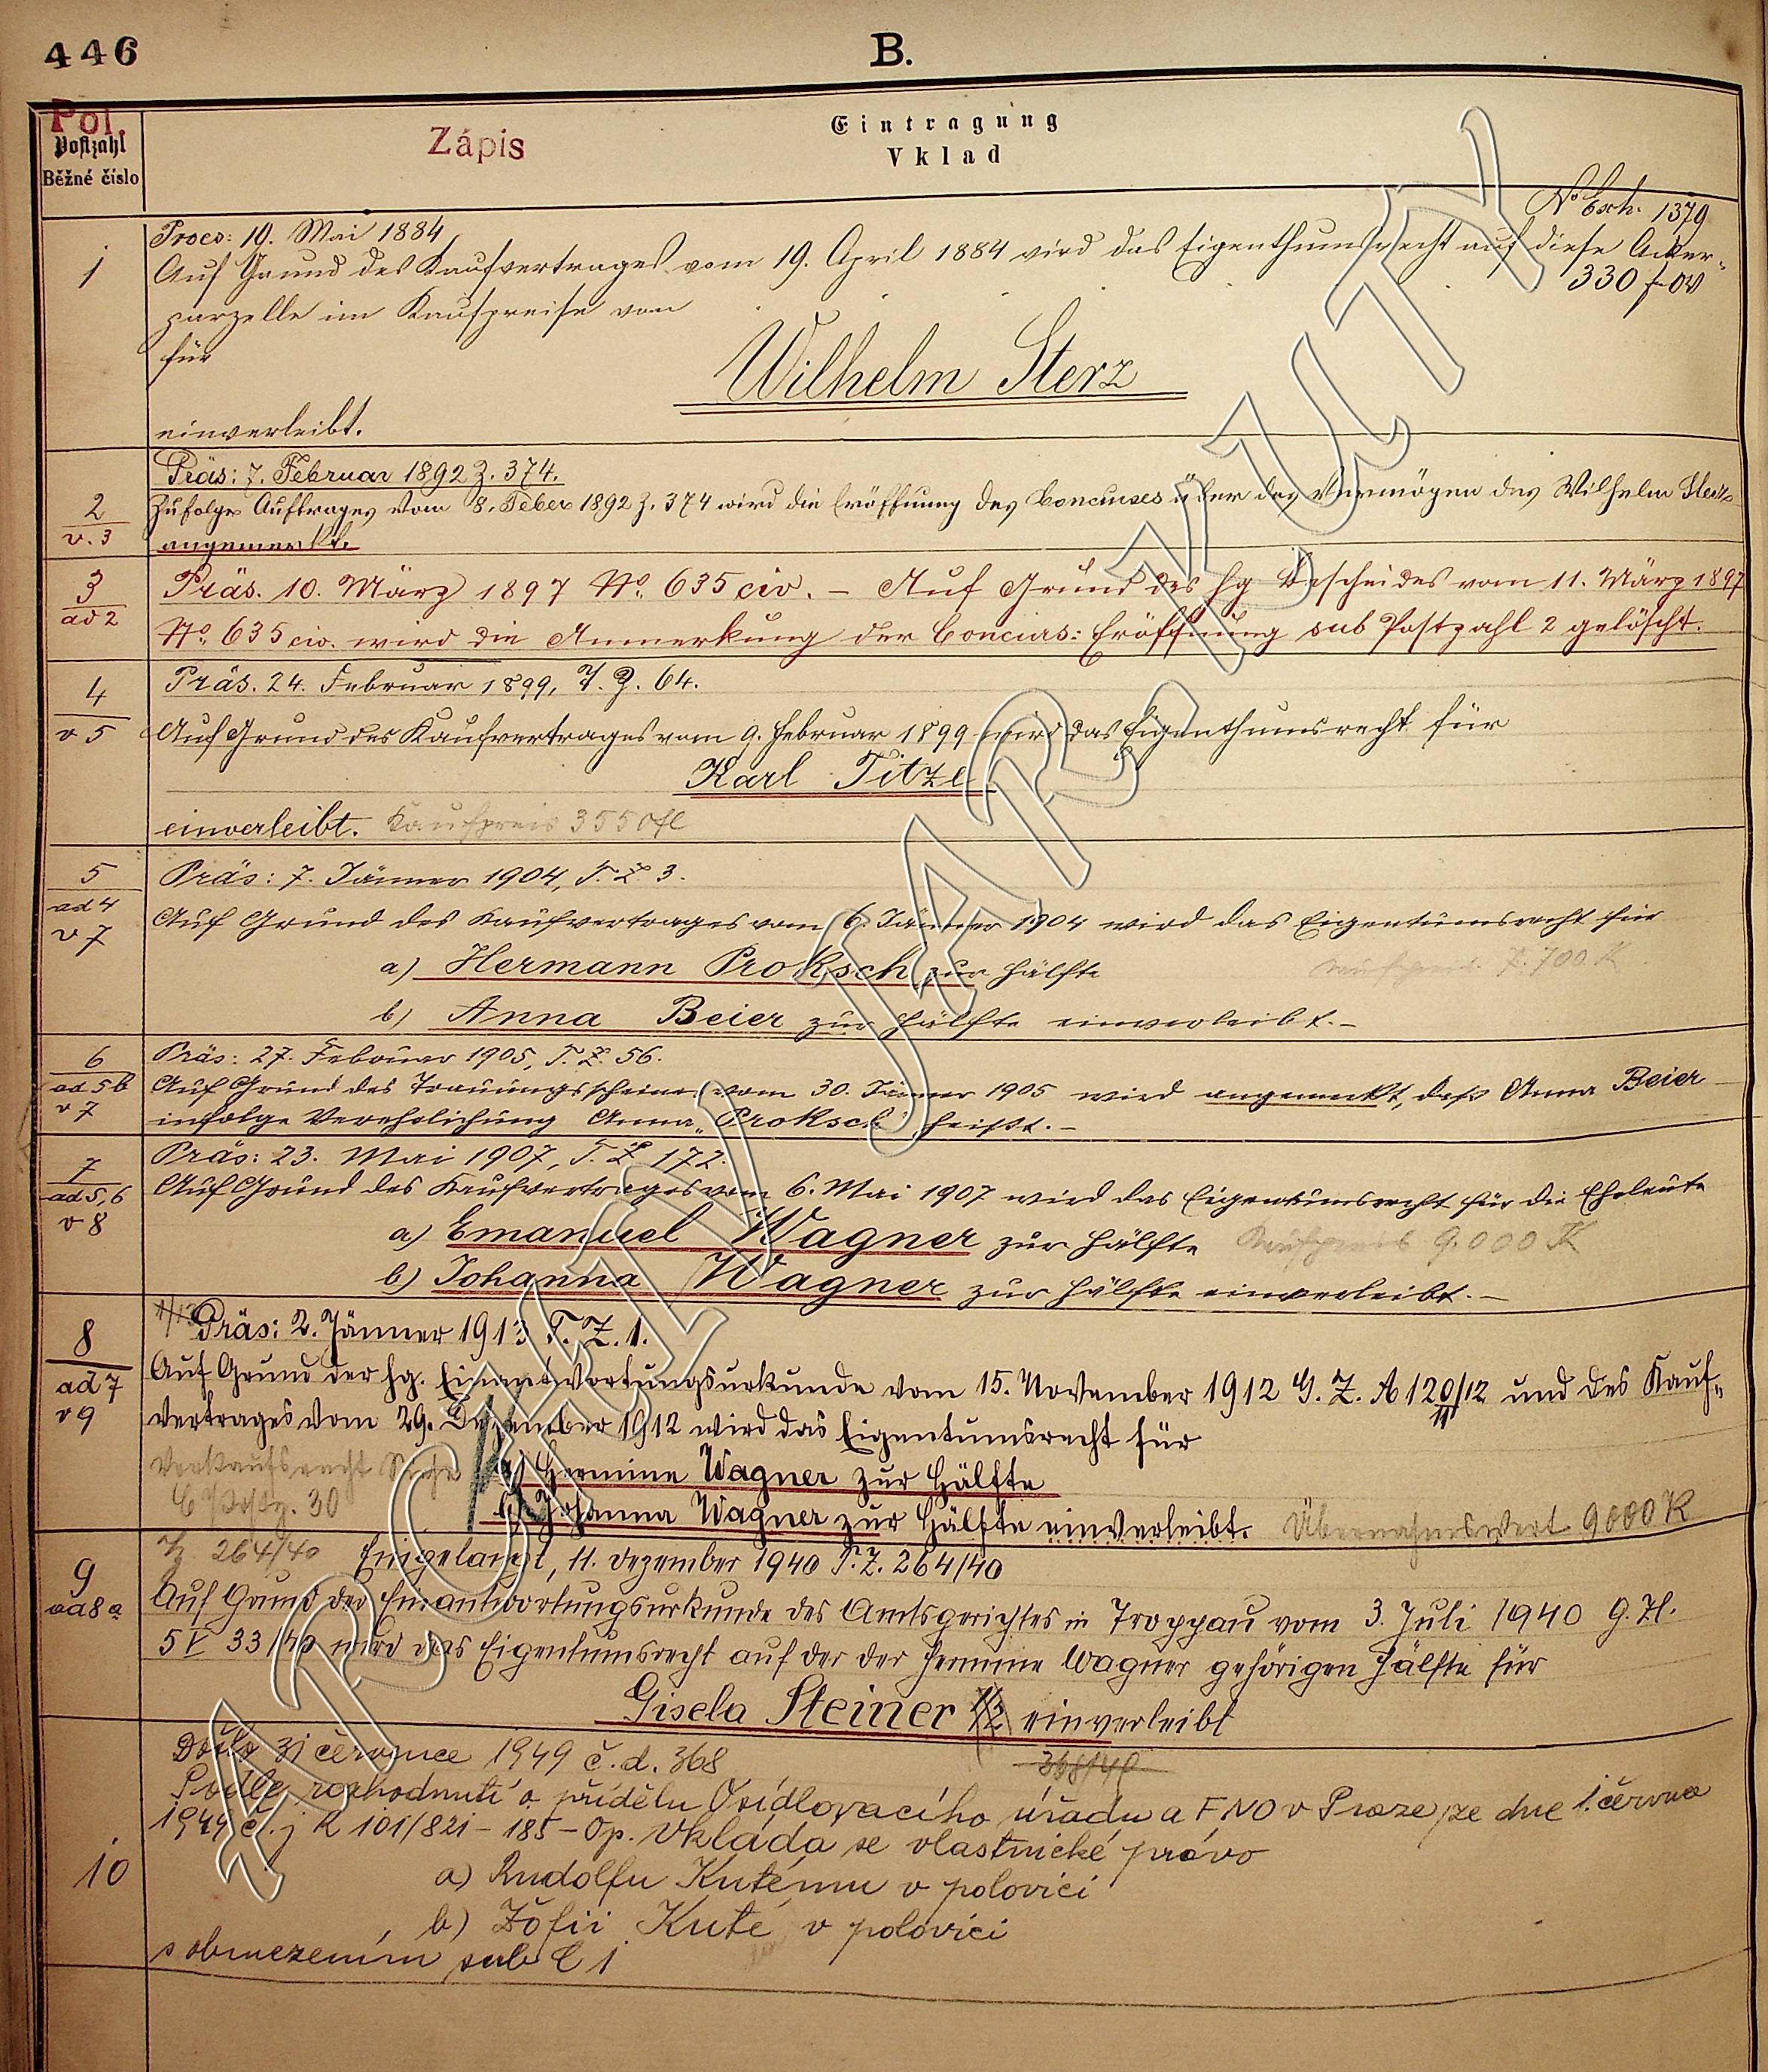 446
B.
Pol.
Postzahl
Běžné číslo
Zápis
Eintragung
Vklad
No Exh. 1379
1
Praes: 10. Mai 1884
Auf Grund des Kaufvertrages vom 19. April 1884 wird das Eigenthumsrecht auf diese Acker-
parzelle im Kaufpreise von 330 f ÖW
für
Wilhelm Sterz
einverleibt.
2
v. 3
Präs: 7. Februar 1892 Z. 374.
Zufolge Auftrages vom 8. Feber 1892 Z. 374 wird die Eröffnung des Concurses über das Vermögen des Wilhelm Sterz
angemerkt.
3
ad 2
Präs. 10. März 1897 No. 635 civ. – Auf Grund des hg Bescheides vom 11. März 1897
No. 635 civ. wird die Anmerkung der Concurs: Eröffnung sub Postzahl 2 gelöscht.
4
v 5
Präs. 24. Februar 1899, T. Z. 64.
Auf Grund des Kaufvertrages vom 9. Februar 1899 wird das Eigenthumsrecht für
Karl Titze
einverleibt. Kaufpreis 3550 fl
5
ad 4
v 7
Präs: 7. Jänner 1904, T. Z. 3.
Auf Grund des Kaufvertrages vom 6. Jänner 1904 wird das Eigentumsrecht für
a) Hermann Proksch zur Hälfte Kaufpreis 7.700 K
b) Anna Beier zur Hälfte einverleibt. –
6
ad 5b
v 7
Präs: 27. Februar 1905, T. Z. 56.
Auf Grund des Trauungsscheines vom 30. Jänner 1905 wird angemerkt, daß Anna Beier
infolge Verehelichung Anna „Proksch" heißt. –
7
ad 5, 6
v 8
Präs: 23. Mai 1907, T. Z. 172.
Auf Grund des Kaufvertrages vom 6. Mai 1907 wird das Eigentumsrecht für die Eheleute
a) Emanuel Wagner zur Hälfte Kaufpreis 9.000 K
b) Johanna Wagner zur Hälfte einverleibt. –
8
ad 7
v 9
1/13
Präs: 2. Jänner 1913 T. Z. 1.
Auf Grund der hg. Einantwortungsurkunde vom 15. November 1912 G. Z. A 120/12 und des Kauf-
11
vertrages vom 29. Dezember 1912 wird das Eigentumsrecht für
Vorkaufsrecht Siehe a) Hermine Wagner zur Hälfte
C Postz. 30 b) Johanna Wagner zur Hälfte einverleibt. Übernahmswert 9000 K
9
ad 8a
Tz 264/40 Eingelangt, 11. Dezember 1940 T. Z. 264/40
Auf Grund der Einantwortungsurkunde des Amtsgerichtes in Troppau vom 3. Juli 1940 G. Zl.
5 V 33/40 wird das Eigentumsrecht auf der der Hermine Wagner gehörigen Hälfte für
Gisela Steiner 1/2 einverleibt
10
Došlo 31 července 1949 č. d. 368
368/49
Podle rozhodnutí o přídělu Osídlovacího úřadu a FNO v Praze ze dne 1. června
1949 č. j R 101/821 – 185 – Op. vkládá se vlastnické právo
a) Rudolfu Kutému v polovici
b) Žofii Kuté v polovici
s obmezením sub C 1
ARCHIV JAR. KUTÝ